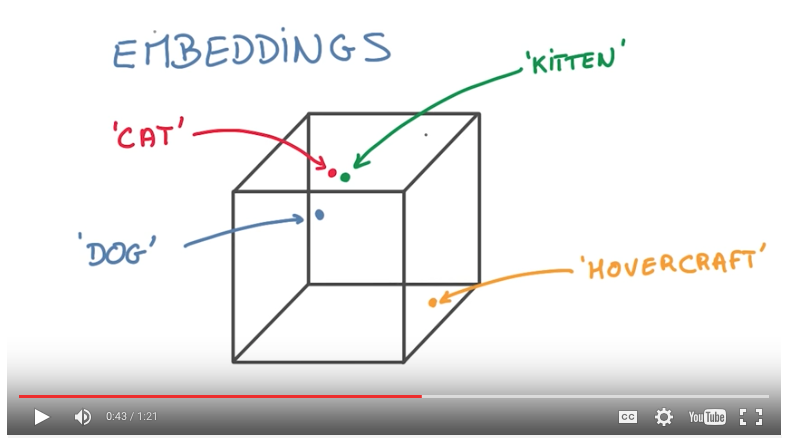 EMBEDDINGS
'KITTEN'
'CAT'
'DOG'
'HOVERCRAFT'
0:43 / 1:21
CC
YouTube